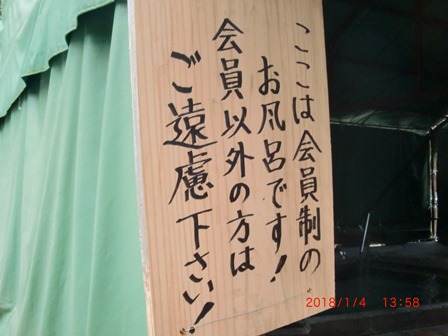 ここは会員制の
お風呂です!
会員以外の方は
ご遠慮下さい!
2018/1/4 13:58